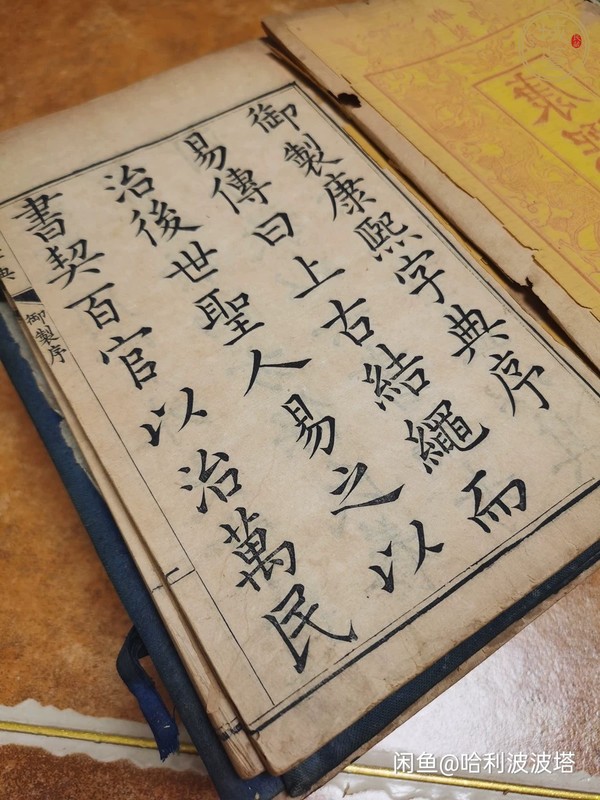 御製康熙字典序
易傳曰上古結繩而
治後世聖人易之以
書契百官以治萬民
典
御製序
闲鱼@哈利波波塔